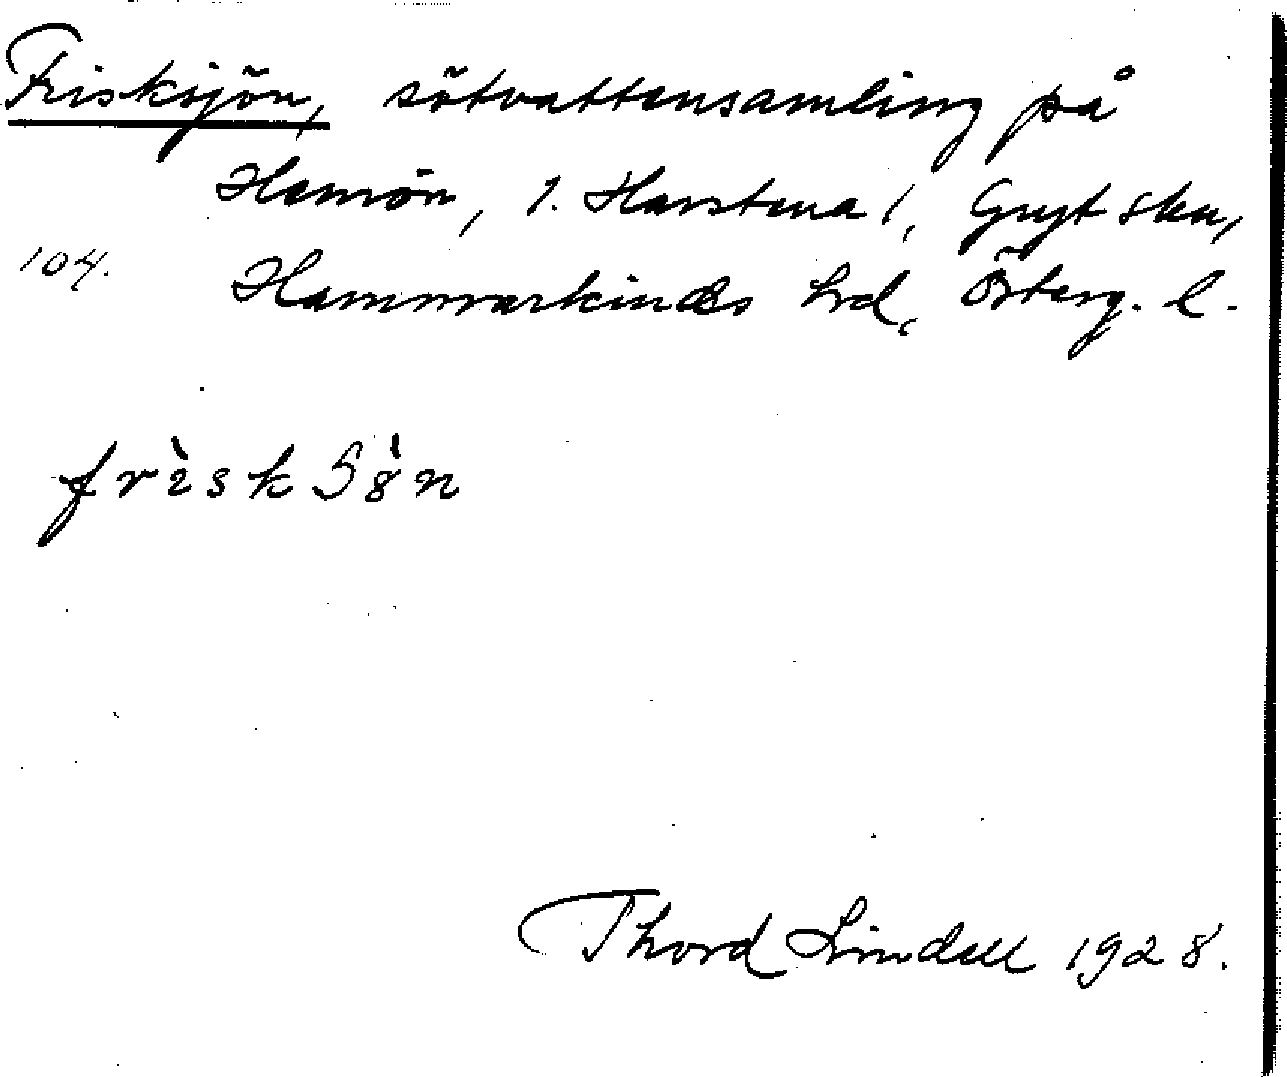 Frisksjön, sötvattensamling på
Hamrön, 1. Harstena 1, Gryt skn,
104. Hammarkinds hrd, Österg. l.
frìskSö̀n
Thord Lindell 1928.